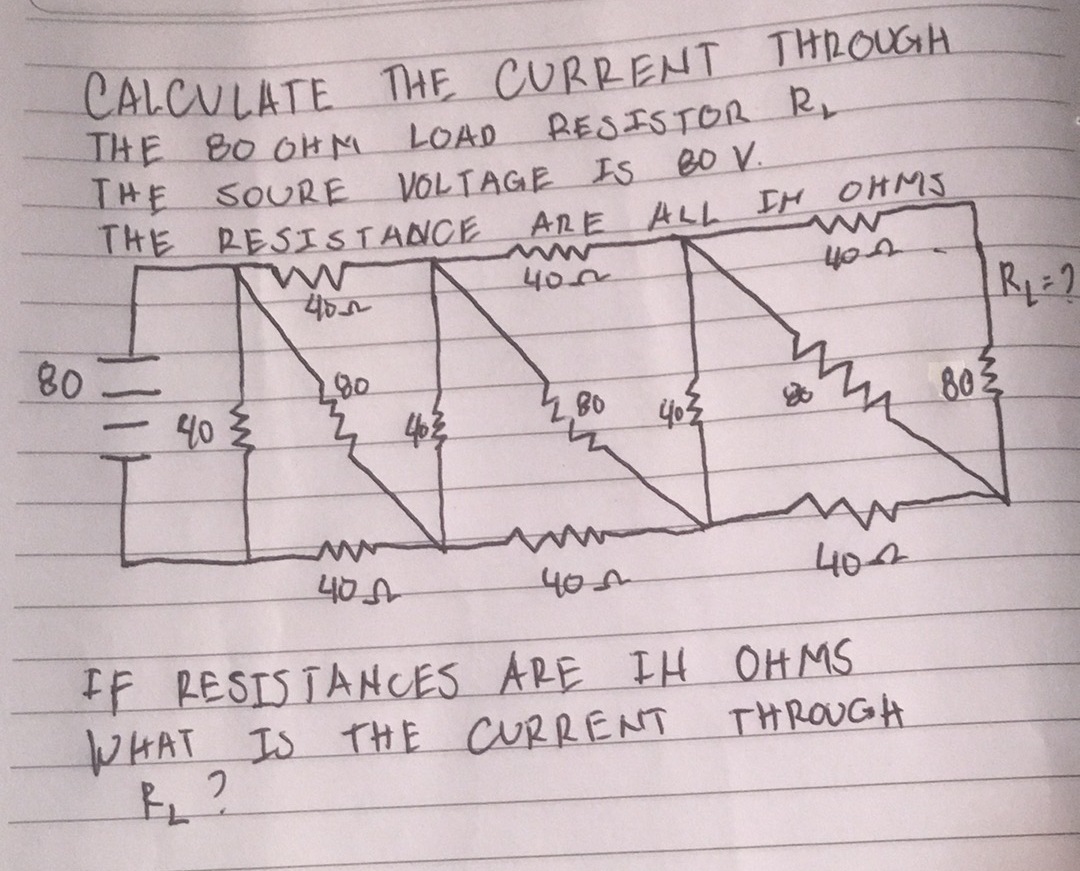 CALCULATE THE CURRENT THROUGH
THE 80 OHM LOAD RESISTOR RL
THE SOURE VOLTAGE IS 80 V.
THE RESISTANCE ARE ALL IN OHMS
40Ω 40Ω 40Ω
RL=?
80 40 80 40 80 40 80 80
40Ω 40Ω 40Ω
IF RESISTANCES ARE IN OHMS
WHAT IS THE CURRENT THROUGH
RL?